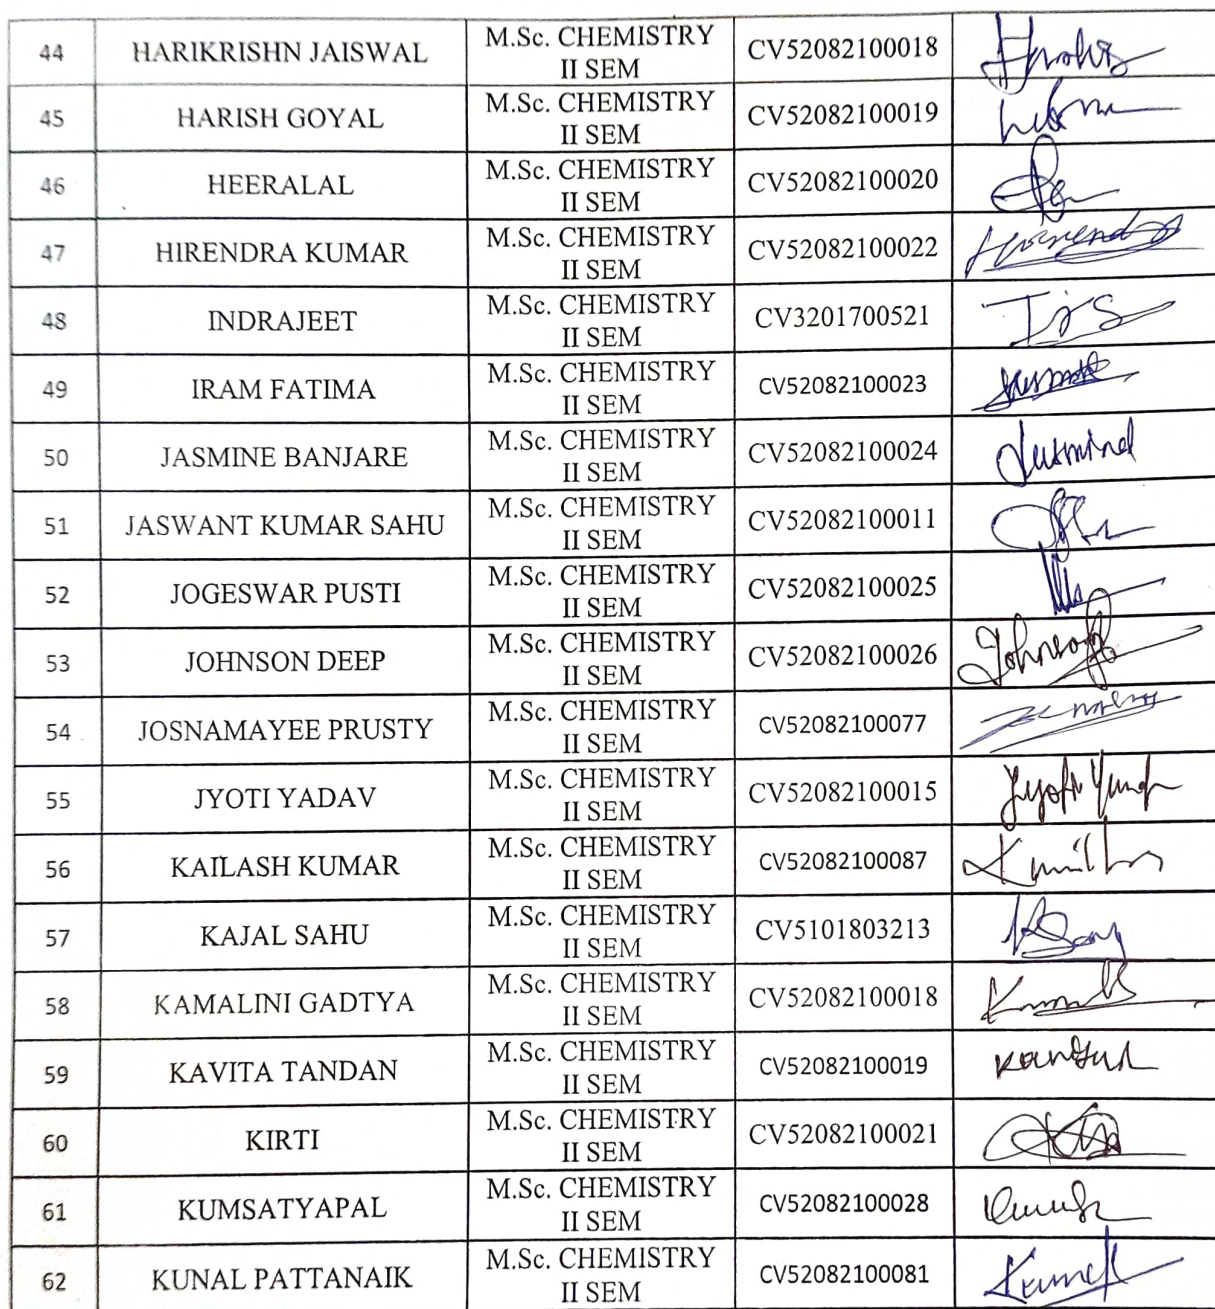 44 HARIKRISHN JAISWAL M.Sc. CHEMISTRY II SEM CV52082100018
45 HARISH GOYAL M.Sc. CHEMISTRY II SEM CV52082100019
46 HEERALAL M.Sc. CHEMISTRY II SEM CV52082100020
47 HIRENDRA KUMAR M.Sc. CHEMISTRY II SEM CV52082100022
48 INDRAJEET M.Sc. CHEMISTRY II SEM CV3201700521
49 IRAM FATIMA M.Sc. CHEMISTRY II SEM CV52082100023
50 JASMINE BANJARE M.Sc. CHEMISTRY II SEM CV52082100024
51 JASWANT KUMAR SAHU M.Sc. CHEMISTRY II SEM CV52082100011
52 JOGESWAR PUSTI M.Sc. CHEMISTRY II SEM CV52082100025
53 JOHNSON DEEP M.Sc. CHEMISTRY II SEM CV52082100026
54 JOSNAMAYEE PRUSTY M.Sc. CHEMISTRY II SEM CV52082100077
55 JYOTI YADAV M.Sc. CHEMISTRY II SEM CV52082100015
56 KAILASH KUMAR M.Sc. CHEMISTRY II SEM CV52082100087
57 KAJAL SAHU M.Sc. CHEMISTRY II SEM CV5101803213
58 KAMALINI GADTYA M.Sc. CHEMISTRY II SEM CV52082100018
59 KAVITA TANDAN M.Sc. CHEMISTRY II SEM CV52082100019
60 KIRTI M.Sc. CHEMISTRY II SEM CV52082100021
61 KUMSATYAPAL M.Sc. CHEMISTRY II SEM CV52082100028
62 KUNAL PATTANAIK M.Sc. CHEMISTRY II SEM CV52082100081